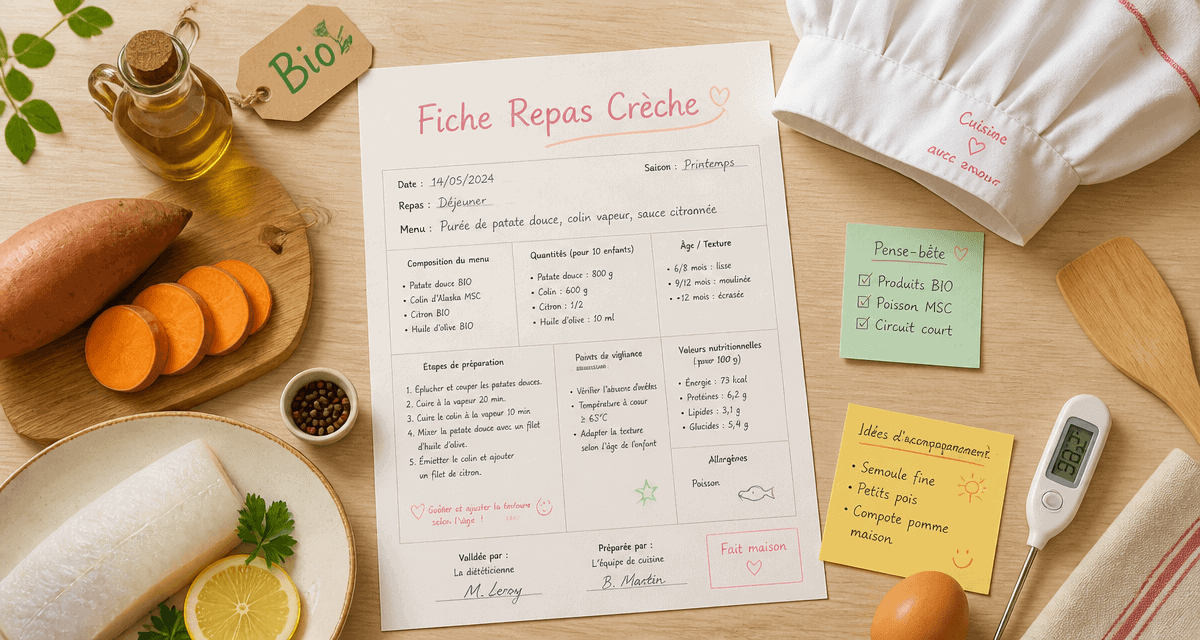 Bio
Fiche Repas Crèche
Date : 14/05/2024
Saison : Printemps
Repas : Déjeuner
Menu : Purée de patate douce, colin vapeur, sauce citronnée
Composition du menu
• Patate douce BIO
• Colin d'Alaska MSC
• Citron BIO
• Huile d'olive BIO
Quantités (pour 10 enfants)
• Patate douce : 800 g
• Colin : 600 g
• Citron : 1/2
• Huile d'olive : 10 ml
Âge / Texture
• 6/8 mois : lisse
• 9/12 mois : moulinée
• +12 mois : écrasée
Etapes de préparation
1. Éplucher et couper les patates douces.
2. Cuire à la vapeur 20 min.
3. Cuire le colin à la vapeur 10 min
4. Mixer la patate douce avec un filet
d'huile d'olive.
5. Émietter le colin et ajouter
un filet de citron.
et ajuster la
selon l'âge !
Points de
• Vérifier l'absence
• Température à cœur
≥ 63°C
• Adapter la texture
selon l'âge de l'enfant
Valeurs nutritionnelles
(pour 100 g)
• Énergie : 73 kcal
• Protéines : 6,2 g
• Lipides : 3,1 g
• Glucides : 5,4 g
Allergènes
Poisson
Validée par :
La diététicienne
M. Leroy
Préparée par :
L'équipe de cuisine
B. Martin
Fait maison
Cuisine
avec amour
Pense-bête
Produits BIO
Poisson MSC
Circuit court
Idées
• Semoule fine
• Petits pois
• Compote pomme
maison